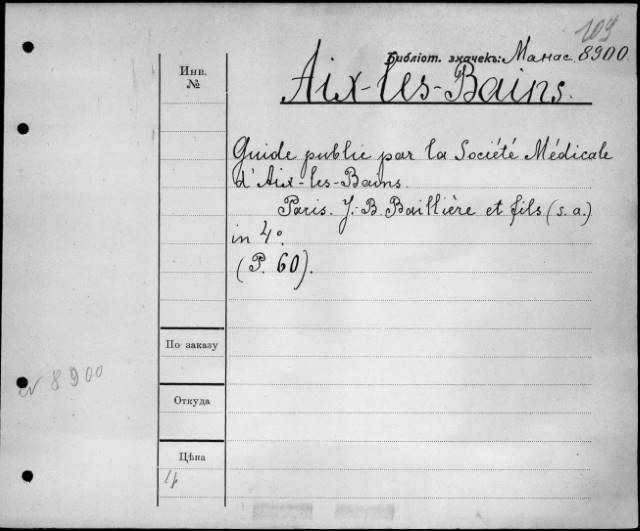 109
Библіот. значекъ: Манас. 8900.
Инв.
№
Aix-les-Bains.
Guide public par la Société Médicale
d'Aix-les-Bains.
Paris. J.-B. Baillière et fils (s.a.)
in 4°.
(P. 60).
По заказу
8900
Откуда
Цѣна